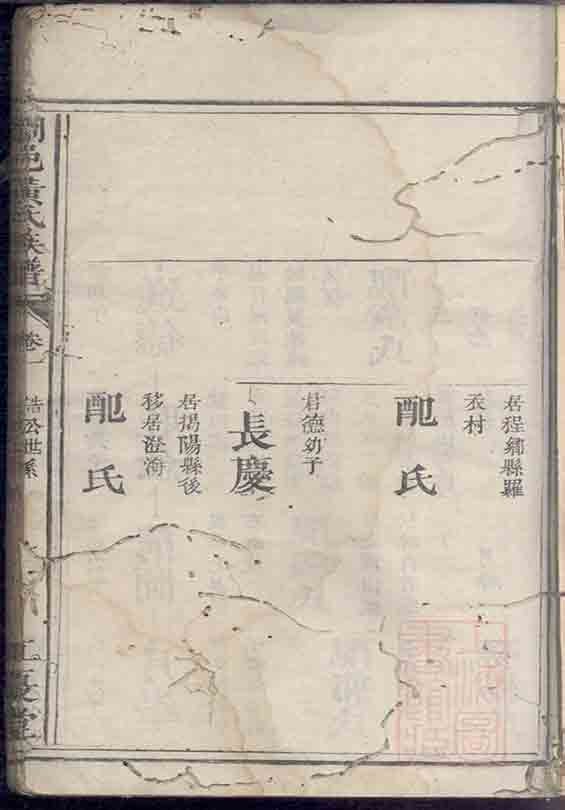 居程鄉縣羅
衣村
配氏
君德幼子
長慶
居揭陽縣後
移居澄海
配氏
邑黃氏族譜
卷一
誥公世系
江夏堂